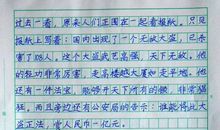 过去一看，原来人们正围在一起看报纸。只见
报纸上写着：国内出现了一个无敌大盗，已杀
害了108人，这个大盗武艺高强，天下无敌。他
的轻功非常厉害，走高楼越大厦如走平地。他
还有一件法宝，能够开天下所有的锁，非常猖
狂。而且旁边还有公安局的告示：谁能将此大
盗正法，赏人民币一亿元。